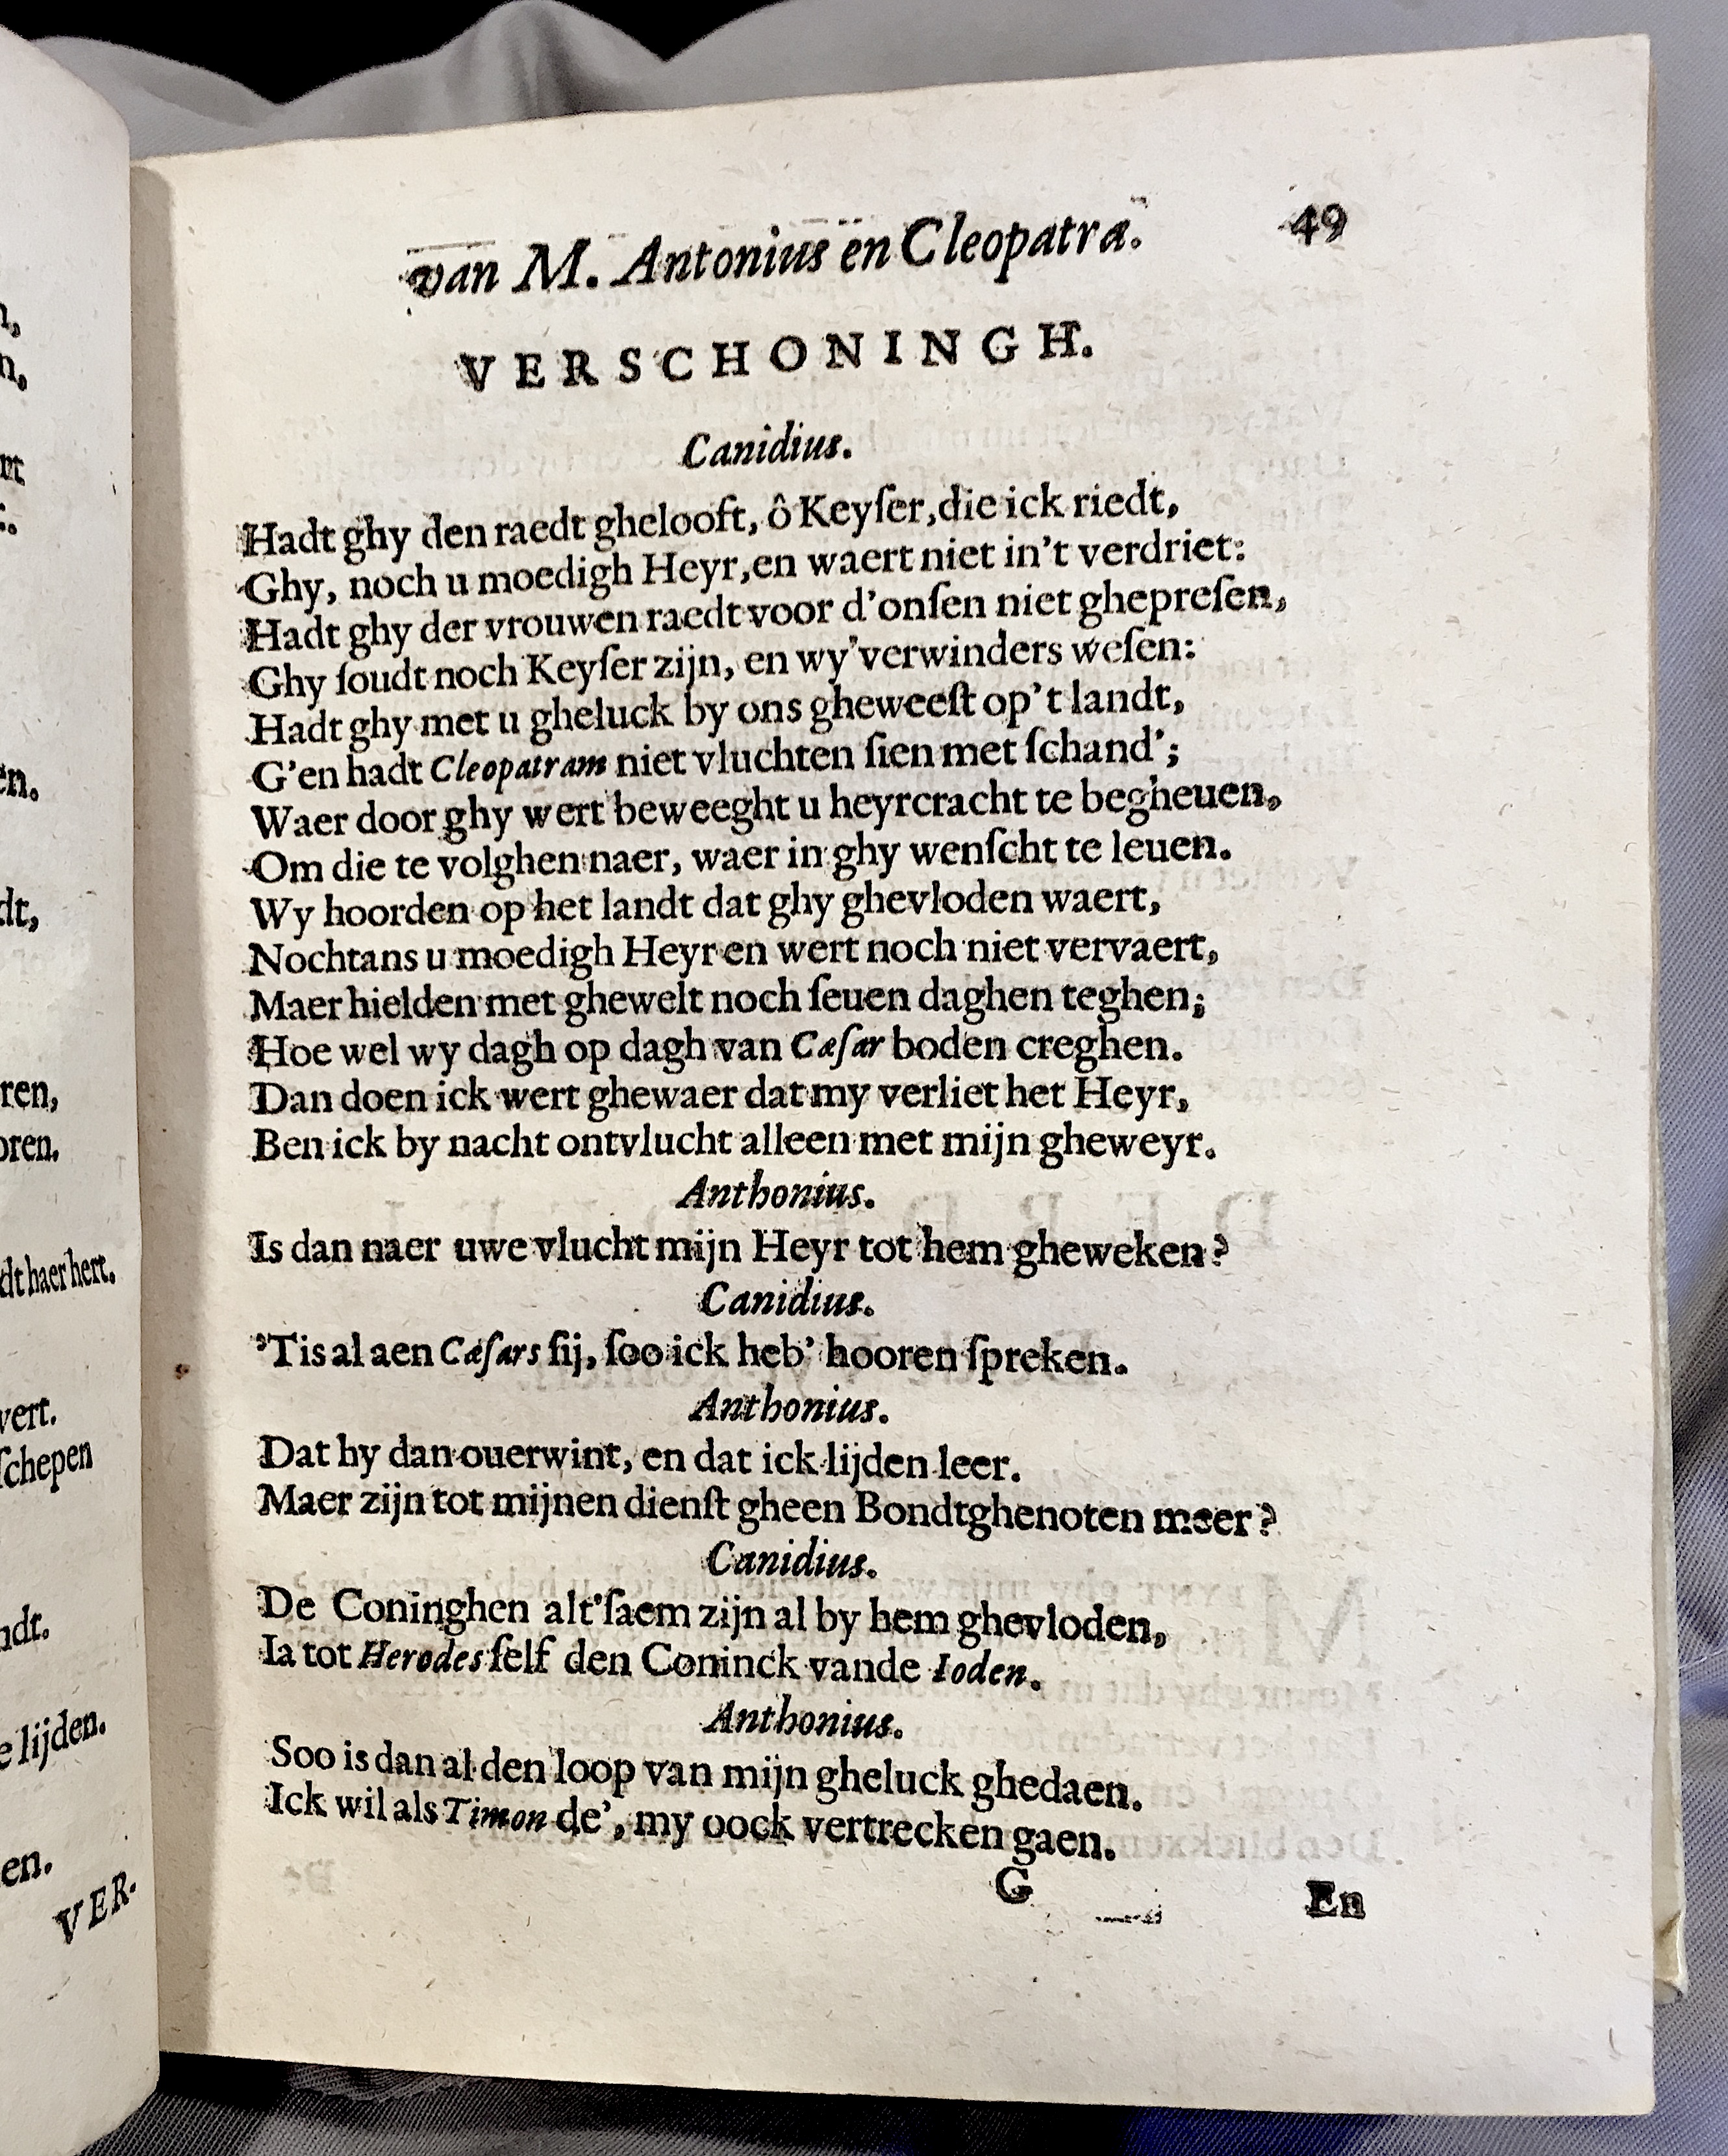 van M. Antonius en Cleopatra. 49
VERSCHONINGH.
Canidius.
Hadt ghy den raedt ghelooft, ô Keyſer, die ick riedt,
Ghy, noch u moedigh Heyr, en waert niet in't verdriet:
Hadt ghy der vrouwen raedt voor d'onſen niet ghepreſen,
Ghy ſoudt noch Keyſer zijn, en wy'verwinders weſen:
Hadt ghy met u gheluck by ons gheweeſt op't landt,
G'en hadt Cleopatram niet vluchten ſien met ſchand';
Waer door ghy wert beweeght u heyrcracht te begheuen,
Om die te volghen naer, waer in ghy wenſcht te leuen.
Wy hoorden op het landt dat ghy ghevloden waert,
Nochtans u moedigh Heyr en wert noch niet vervaert,
Maer hielden met ghewelt noch ſeuen daghen teghen;
Hoe wel wy dagh op dagh van Cæſar boden creghen.
Dan doen ick wert ghewaer dat my verliet het Heyr,
Ben ick by nacht ontvlucht alleen met mijn gheweyr.
Anthonius.
Is dan naer uwe vlucht mijn Heyr tot hem gheweken?
Canidius.
'Tis al aen Cæſars ſij, ſoo ick heb' hooren ſpreken.
Anthonius.
Dat hy dan ouerwint, en dat ick lijden leer.
Maer zijn tot mijnen dienſt gheen Bondtghenoten meer?
Canidius.
De Coninghen alt'ſaem zijn al by hem ghevloden,
Ia tot Herodes ſelf den Coninck vande Ioden.
Anthonius.
Soo is dan al den loop van mijn gheluck ghedaen.
Ick wil als Timon de', my oock vertrecken gaen.
G En
dt haer hert.
ſchepen
lijden.
VER-